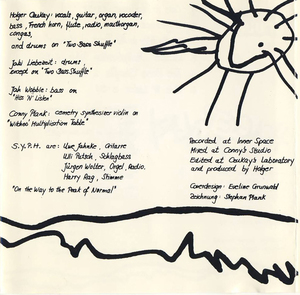 Holger Czukay: vocals, guitar, organ, vocoder,
bass, French horn, flute, radio, mouthorgan,
congas,
and drums on "Two Bass Shuffle"
Jaki Liebezeit: drums,
except on "Two Bass Shuffle"
Jah Wobble: bass on
"Hiss 'N' Listen"
Conny Plank: cemetry synthesizer violin on
"Witches' Multiplication Table"
S.Y.P.H. are: Uwe Jahnke, Gitarre
Ulli Putsch, Schlagbass
Jürgen Wolter, Orgel, Radio,
Harry Rag, Stimme
"On the Way to the Peak of Normal"
Recorded at Inner Space
Mixed at Conny's Studio
Edited at Czukay's Laboratory
and produced by Holger
Coverdesign: Eveline Grunwald
Zeichnung: Stephan Plank